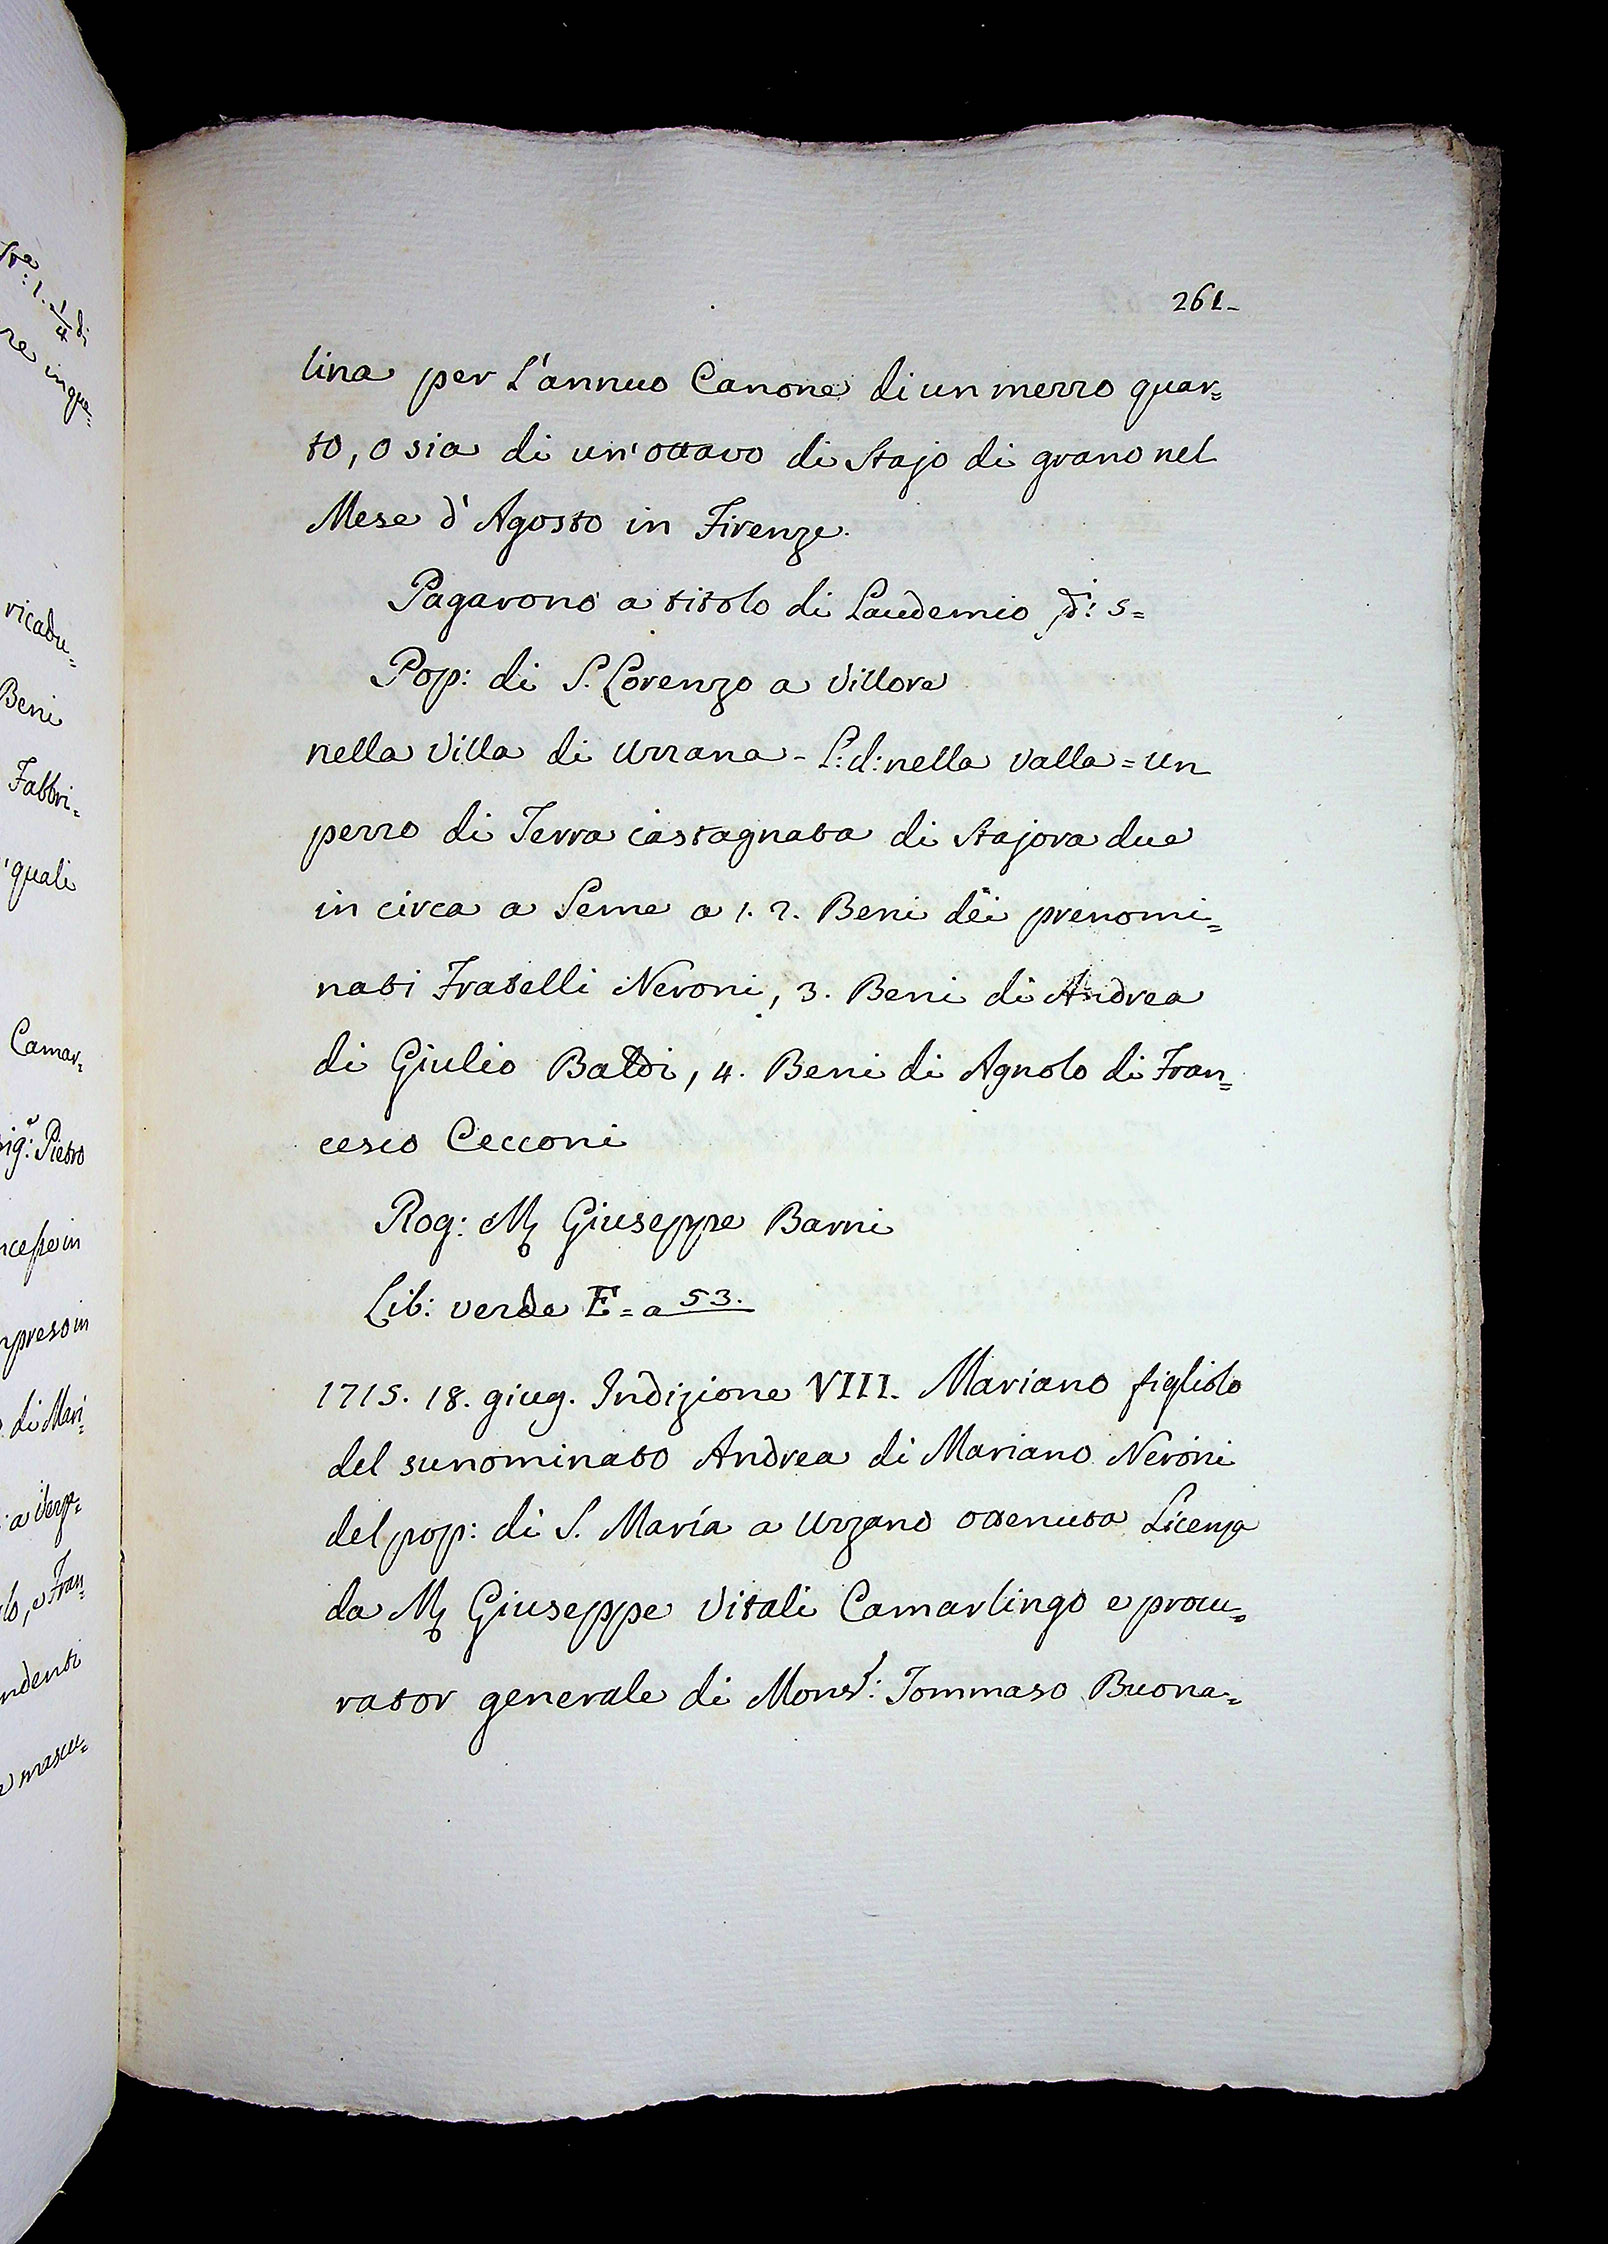 261-
lina per L'annuo Canone di un mezzo quar=
to, o sia di un'ottavo di Stajo di grano nel
Mese d'Agosto in Firenze.
Pagarono a titolo di Laudemio 5=
Pop: di S. Lorenzo a Villore
nella Villa di Uzzana - L: d: nella Valla = Un
pezzo di Terra castagnata di Stajora due
in circa a Seme a 1. 2. Beni dei prenomi=
nati Fratelli Neroni, 3. Beni di Andrea
di Giulio Baldi, 4. Beni di Agnolo di Fran=
cesco Cecconi
Rog: M Giuseppe Barni
Lib: verde E = a 53.
1715. 18. giug. Indizione VIII. Mariano figliolo
del sunominato Andrea di Mariano Neroni
del pop: di S. María a Uzzano ottenuta Licenza
da M Giuseppe Vitali Camarlingo e procu=
rator generale di Monsr: Tommaso Buona=
ricadu=
Beni
Fabbri=
quali
Camar=
Sig.e: Pietro
di Mari=